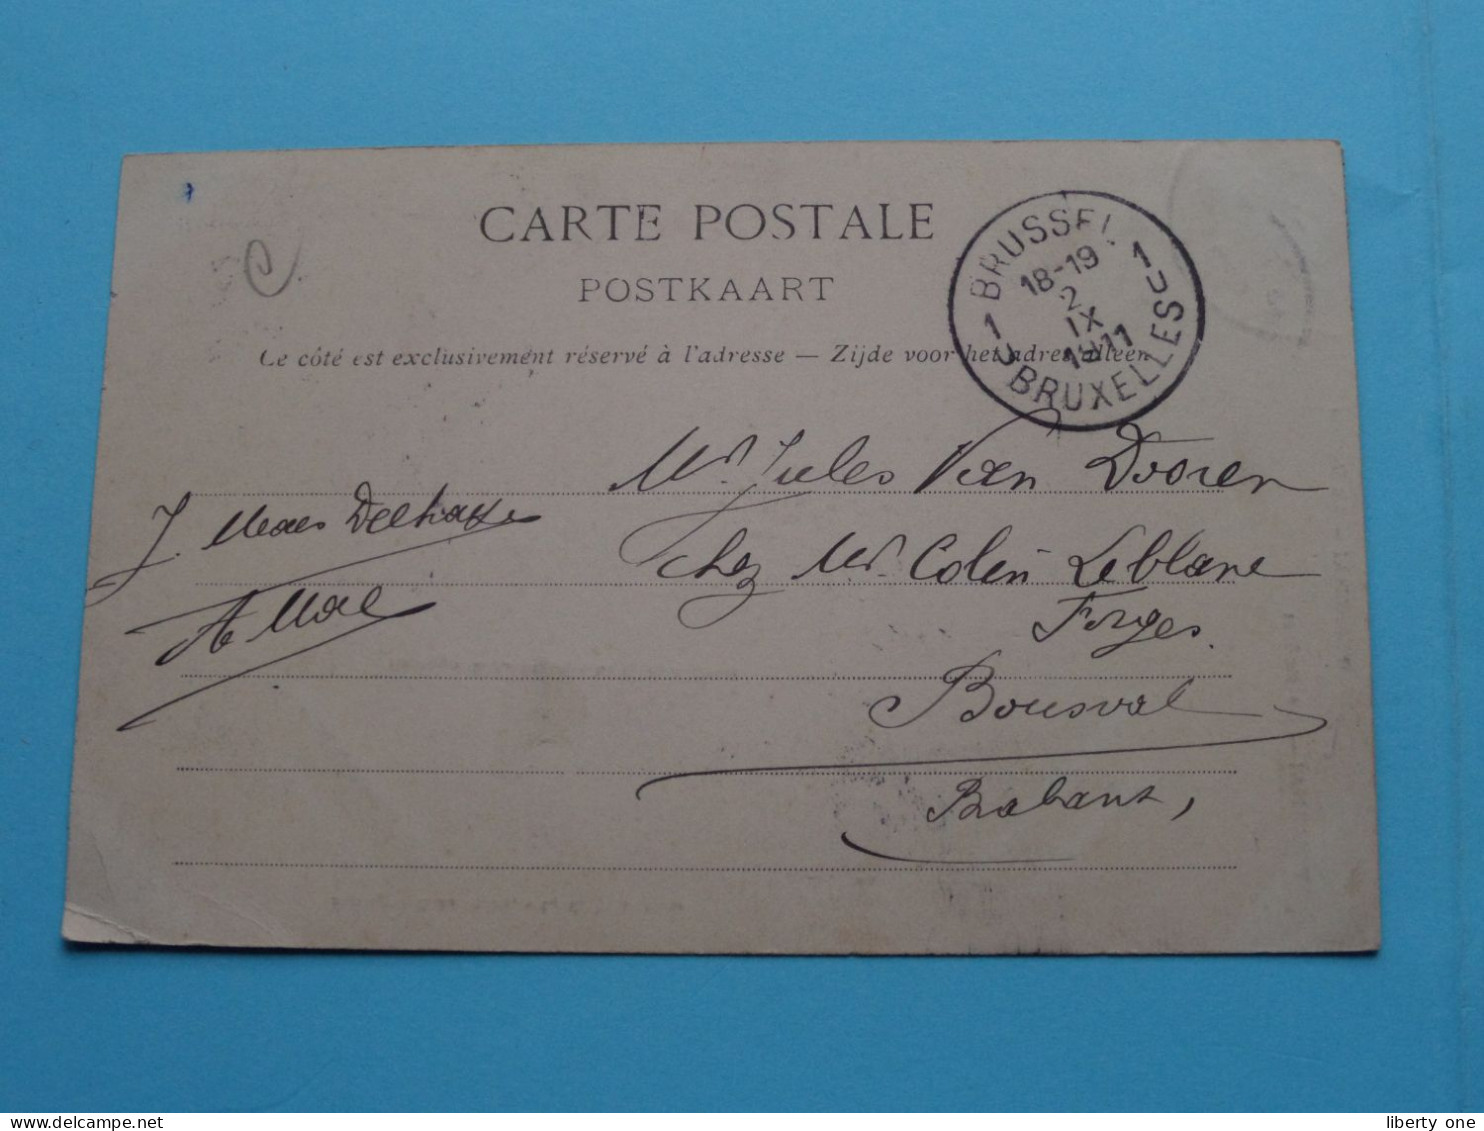 CARTE POSTALE
POSTKAART
Le côté est exclusivement réservé à l'adresse — Zijde voor het adres alleen
BRUSSEL 1
18-19
2
IX
1911
1 BRUXELLES
Mr. Jules Van Dooren
chez Mr. Colin Leblanc
Forges
Bousval
Brabant,
J. Maes Delhaye
A Mae
delcampe.net
liberty one